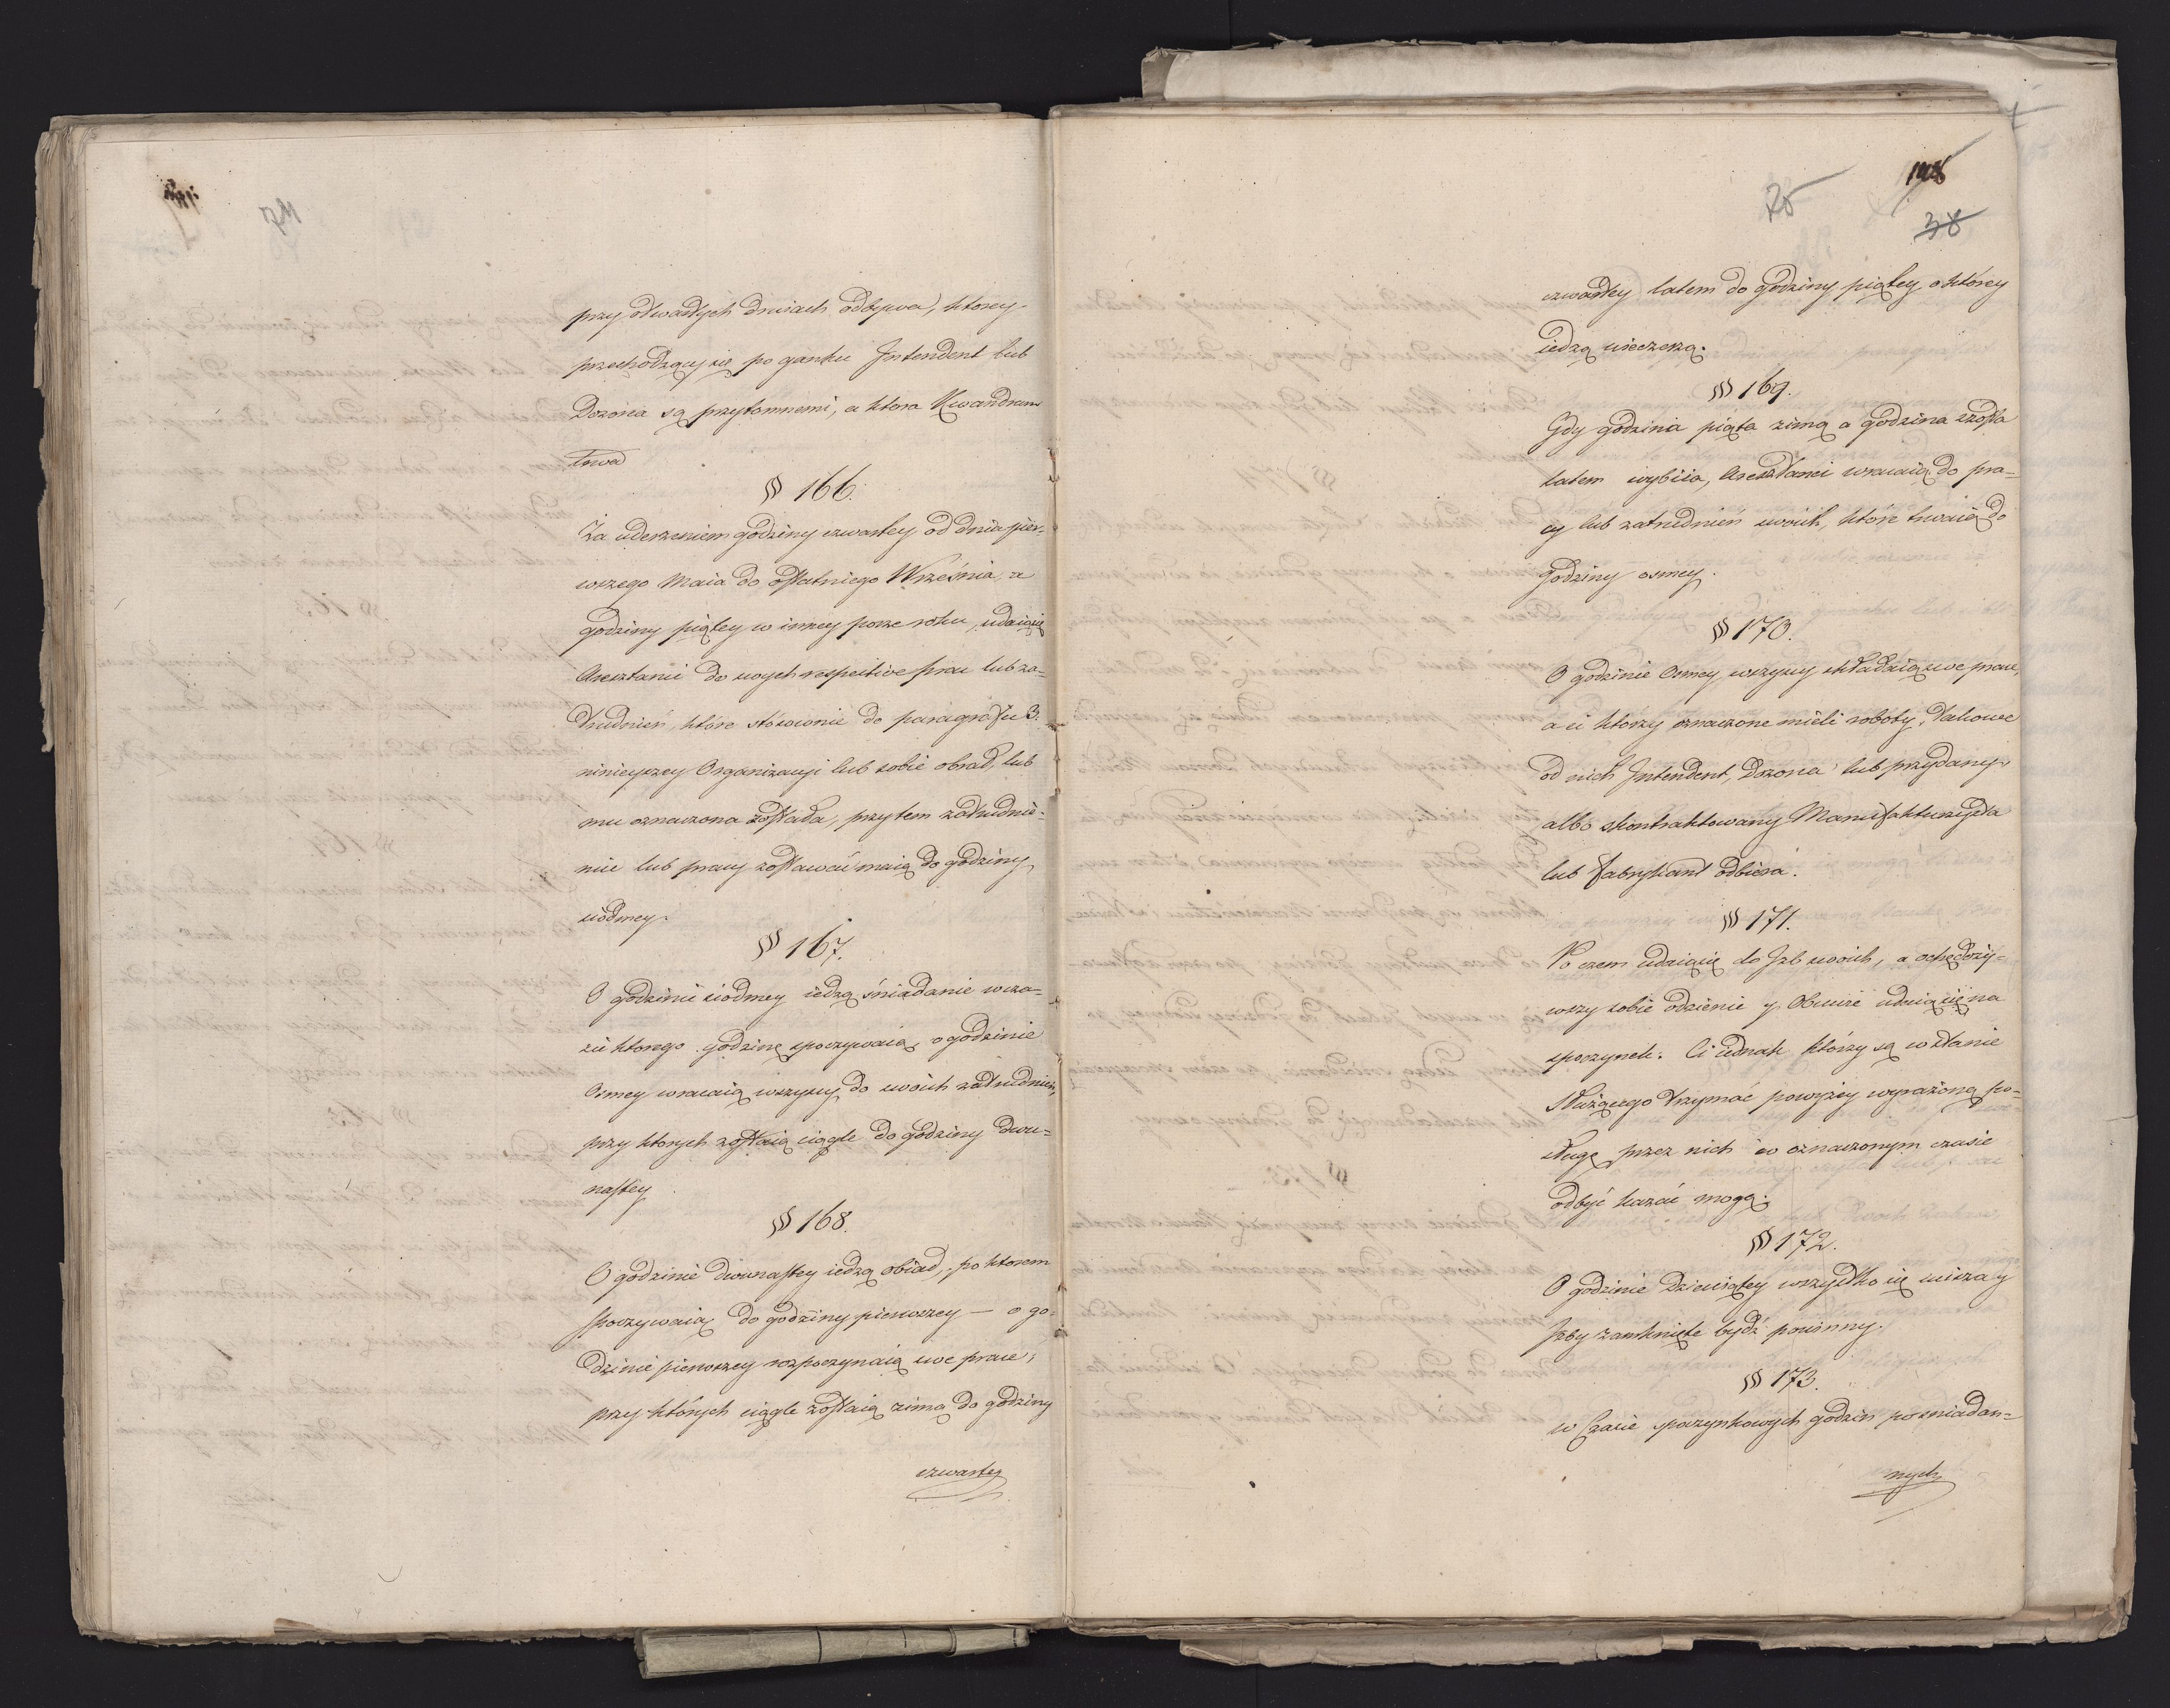 przy otwartych drwiach odbywa, ktorey
przechodzący się po ganku Intendent lub
Dozorca są przytomnemi, a ktora Kwandrans
trwa
§ 166.
Za uderzeniem godziny czwartey od dnia pier=
wszego Maia do ostatniego Września, a
godziny piątey w inney porze roku, udaią się
Aresztanci do swych respective prac lub za=
trudnień, które stósownie do paragrafu 3.
ninieyszey Organizacyi lub sobie obrał, lub
mu oznaczona została, przytem zatrudnie=
niu lub pracy zostawać maią do godziny
siodmey.
§ 167.
O godzinie siodmey iedzą śniadanie w cza=
sie ktorego godzinę spoczywaią, o godzinie
Osmey wracaią wszyscy do swoich zatrudnień,
przy ktorych zostaią ciągle do godziny dwu=
nastey
§ 168.
O godzinie dwunastey iedzą obiad, po ktorem
spoczywaią do godziny pierwszey — o go=
dzinie pierwszey rozpoczynaią swe prace,
przy których ciągle zostaią zimą do godziny
czwartey
25
38
czwartey latem do godziny piątey o którey
iedzą wieczerzą.
§ 169.
Gdy godzina piąta zimą a godzina szosta
latem wybiia, Aresztanci wracaią do pra=
cy lub zatrudnień swoich, które trwaią do
godziny osmey.
§ 170.
O godzinie Osmey wszyscy składaią swe prace,
a ci którzy oznaczone mieli roboty, takowe
od nich Intendent, Dozorca lub przydany
albo skontraktowany Manufakturzysta
lub Fabrykant odbiera.
§ 171.
Po czem udaią się do Izb swoich, a ochędoży=
wszy sobie odzienie y Obuwie udaią się na
spoczynek. Ci iednak którzy są w stanie
Służącego trzymać powyżey wyrażoną po=
sługę przez nich w oznaczonym czasie
odbyć kazać mogą.
§ 172.
O godzinie Dziewiątey wszystko się ucisza y
Izby zamknięte bydź powinny.
§ 173.
w Czasie spoczynkowych godzin pośniadan=
nych